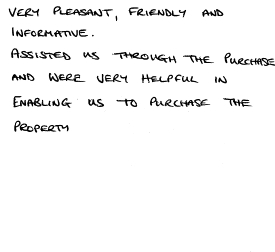 VERY PLEASANT, FRIENDLY AND
INFORMATIVE.
ASSISTED US THROUGH THE PURCHASE
AND WERE VERY HELPFUL IN
ENABLING US TO PURCHASE THE
PROPERTY